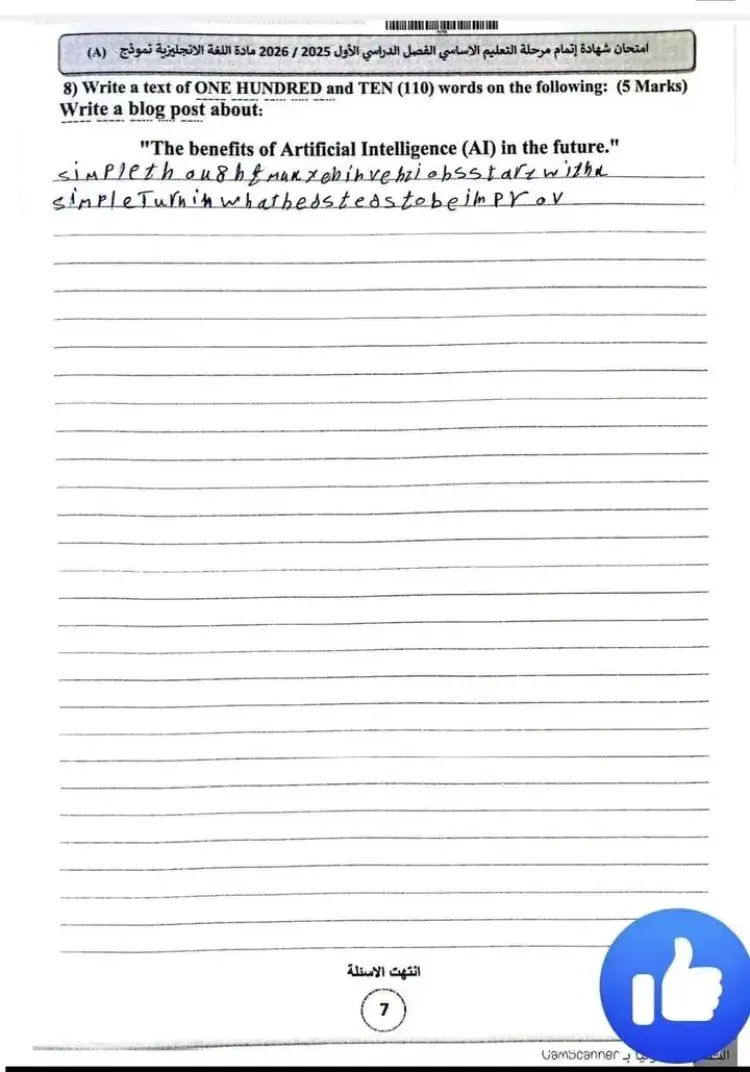 امتحان شهادة إتمام مرحلة التعليم الاساسي الفصل الدراسي الأول 2025 / 2026 مادة اللغة الانجليزية نموذج (A)
8) Write a text of ONE HUNDRED and TEN (110) words on the following: (5 Marks)
Write a blog post about:
"The benefits of Artificial Intelligence (AI) in the future."
simplethought
simpleTurninwhathedstedstobeimprov
انتهت الاسئلة
7
CamScanner